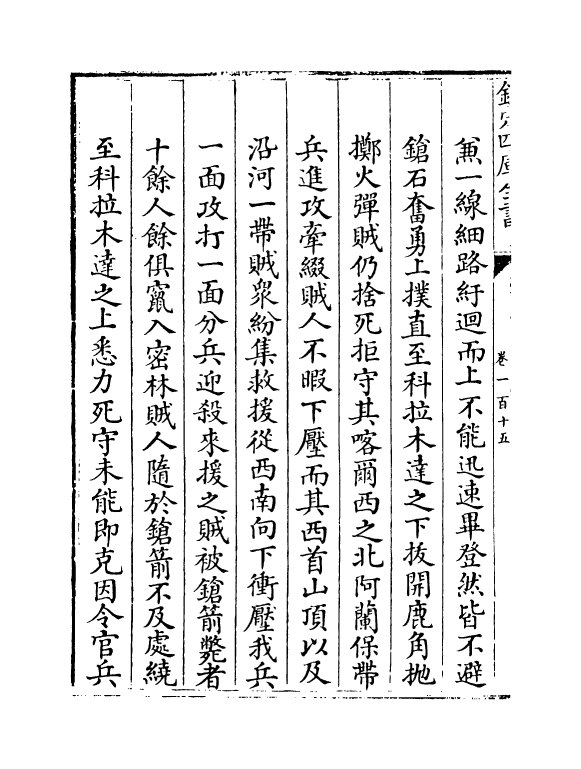 欽定四庫全書
卷一百十五
兼一線細路紆迴而上不能迅速畢登然皆不避
鎗石奮勇上撲直至科拉木達之下拔開鹿角抛
擲火彈賊仍捨死拒守其喀爾西之北阿蘭保帶
兵進攻牽綴賊人不暇下壓而其西首山頂以及
沿河一帶賊衆紛集救援從西南向下衝壓我兵
一面攻打一面分兵迎殺來援之賊被鎗箭斃者
十餘人餘俱竄入密林賊人隨於鎗箭不及處繞
至科拉木達之上悉力死守未能即克因令官兵